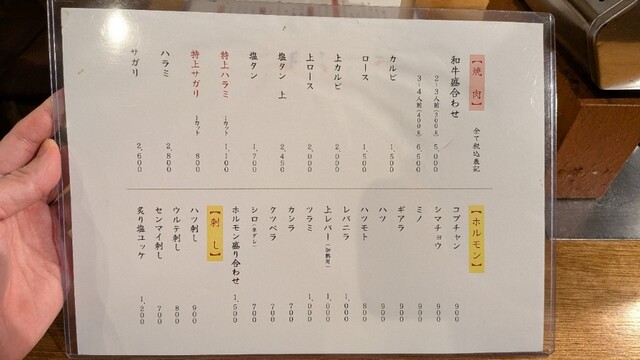 【焼肉】 全て税込表記
和牛盛合わせ
2~3人前(300g) 5,000
3~4人前(400g) 6,500
カルビ 1,500
ロース 1,500
上カルビ 2,000
上ロース 2,000
塩タン 上 2,450
塩タン 1,700
特上ハラミ 1カット 1,100
特上サガリ 1カット 800
ハラミ 2,800
サガリ 2,600
【ホルモン】
コプチャン 900
シマチョウ 900
ミノ 900
ギアラ 900
ハツ 900
ハツモト 800
レバニラ 1,000
上レバー(加熱用) 1,000
ツラミ 1,000
カシラ 700
クツベラ 700
シロ 700
ホルモン盛り合わせ 1,500
【刺し】
ハツ刺し 900
ウルテ刺し 800
センマイ刺し 700
炙り塩ユッケ 1,200